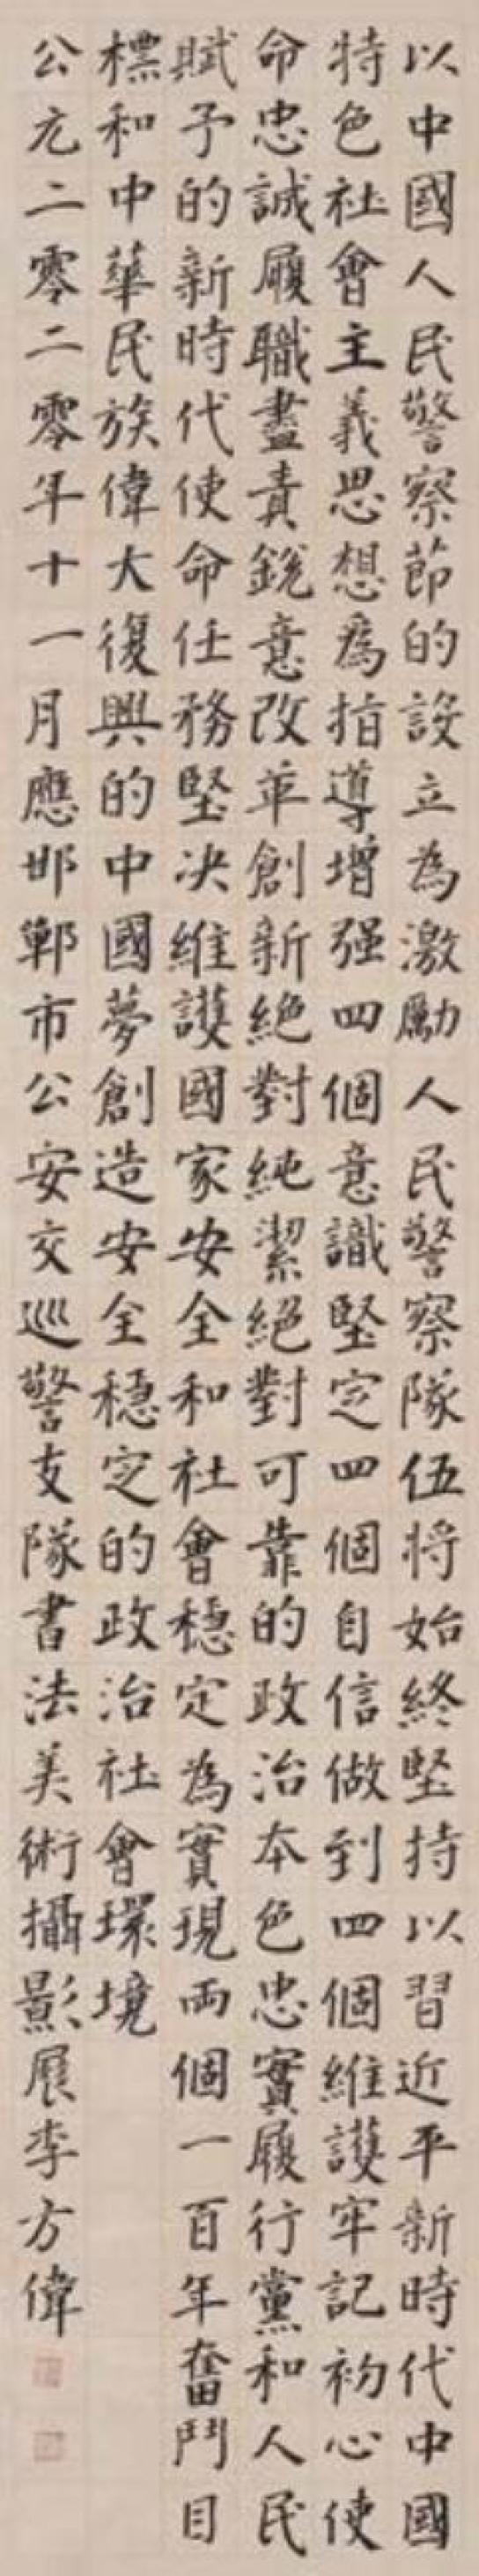 以中國人民警察節的設立為激勵人民警察隊伍將始終堅持以習近平新時代中國
特色社會主義思想為指導增强四個意識堅定四個自信做到四個維護牢記初心使
命忠誠履職盡責銳意改革創新絕對純潔絕對可靠的政治本色忠實履行黨和人民
賦予的新時代使命任務堅决維護國家安全和社會穩定為實現兩個一百年奮鬥目
標和中華民族偉大復興的中國夢創造安全穩定的政治社會環境
公元二零二零年十一月應邯鄲市公安交巡警支隊書法美術攝影展李方偉